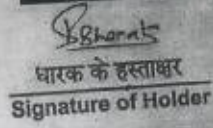 BBharat
धारक के हस्ताक्षर
Signature of Holder